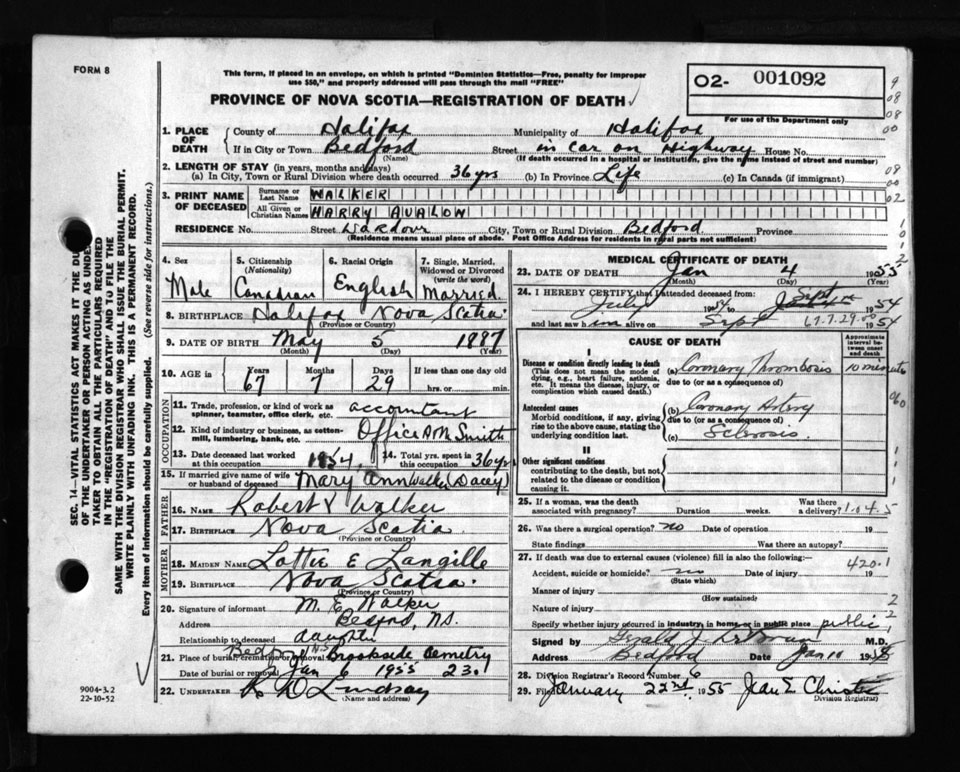 FORM 8
This form, if placed in an envelope, on which is printed "Dominion Statistics—Free, penalty for improper
use $50," and properly addressed will pass through the mail "FREE"
PROVINCE OF NOVA SCOTIA—REGISTRATION OF DEATH
O2- 001092
For use of the Department only
1. PLACE OF DEATH
County of Halifax Municipality of Halifax
If in City or Town Bedford Street in car on Highway House No.
(Name) (If death occurred in a hospital or institution, give the name instead of street and number)
2. LENGTH OF STAY (in years, months and days)
(a) In City, Town or Rural Division where death occurred 36 yrs (b) In Province Life (c) In Canada (if immigrant)
3. PRINT NAME OF DECEASED
Surname or Last Name WALKER
All Given or Christian Names HARRY AVALON
RESIDENCE No. Street Wardour City, Town or Rural Division Bedford Province
(Residence means usual place of abode. Post Office Address for residents in rural parts not sufficient)
4. Sex Male
5. Citizenship (Nationality) Canadian
6. Racial Origin English
7. Single, Married, Widowed or Divorced (write the word) Married
8. BIRTHPLACE Halifax Nova Scotia
(Province or Country)
9. DATE OF BIRTH May 5 1887
(Month) (Day) (Year)
10. AGE in Years 67 Months 7 Days 29 If less than one day old
hrs. or min.
OCCUPATION
11. Trade, profession, or kind of work as spinner, teamster, office clerk, etc. accountant
12. Kind of industry or business, as cotton-mill, lumbering, bank, etc. Office A M Smith
13. Date deceased last worked at this occupation 1954 14. Total yrs. spent in this occupation 36 yrs
15. If married give name of wife or husband of deceased Mary Ann Walker (Dacey)
FATHER
16. Name Robert Walker
17. Birthplace Nova Scotia
(Province or Country)
MOTHER
18. MAIDEN NAME Lottie E Langille
19. BIRTHPLACE Nova Scotia
(Province or Country)
20. Signature of informant M. E. Walker
Address Bedford, N.S.
Relationship to deceased daughter
21. Place of burial, cremation or removal Bedford NS Brookside Cemetry
Date of burial or removal Jan 6 1955 230
22. UNDERTAKER Lindsay
(Name and address)
MEDICAL CERTIFICATE OF DEATH
23. DATE OF DEATH Jan 4 1955
(Month) (Day)
24. I HEREBY CERTIFY that I attended deceased from
July 1954 to Sept 1954
and last saw him alive on Sept 1954
67.7.29.00
CAUSE OF DEATH
Approximate interval between onset and death
I
Disease or condition directly leading to death
(This does not mean the mode of dying, e.g., heart failure, asthenia, etc. It means the disease, injury, or complication which caused death.)
(a) Coronary Thrombosis 10 minutes
due to (or as a consequence of)
Antecedent causes
Morbid conditions, if any, giving rise to the above cause, stating the underlying condition last.
(b) Coronary Artery
due to (or as a consequence of)
(c) Sclerosis
II
Other significant conditions
contributing to the death, but not related to the disease or condition causing it.
25. If a woman, was the death associated with pregnancy? Duration weeks. Was there a delivery?
26. Was there a surgical operation? no Date of operation 19
State findings Was there an autopsy?
27. If death was due to external causes (violence) fill in also the following:—
420.1
Accident, suicide or homicide? no Date of injury 19
(State which)
Manner of injury
(How sustained)
Nature of injury
Specify whether injury occurred in industry, in home, or in public place public
Signed by M.D.
Address Bedford Date Jan 10
28. Division Registrar's Record Number 6
29. Filed January 22nd 1955 Jean E Christie
Division Registrar
SEC. 14—VITAL STATISTICS ACT MAKES IT THE DU
OF THE UNDERTAKER OR PERSON ACTING AS UNDER
TAKER TO OBTAIN ALL THE PARTICULARS REQUIRED
IN THE "REGISTRATION OF DEATH" AND TO FILE THE
SAME WITH THE DIVISION REGISTRAR WHO SHALL ISSUE THE BURIAL PERMIT.
WRITE PLAINLY WITH UNFADING INK. THIS IS A PERMANENT RECORD.
Every item of information should be carefully supplied. (See reverse side for instructions.)
9004-3.2
22-10-52